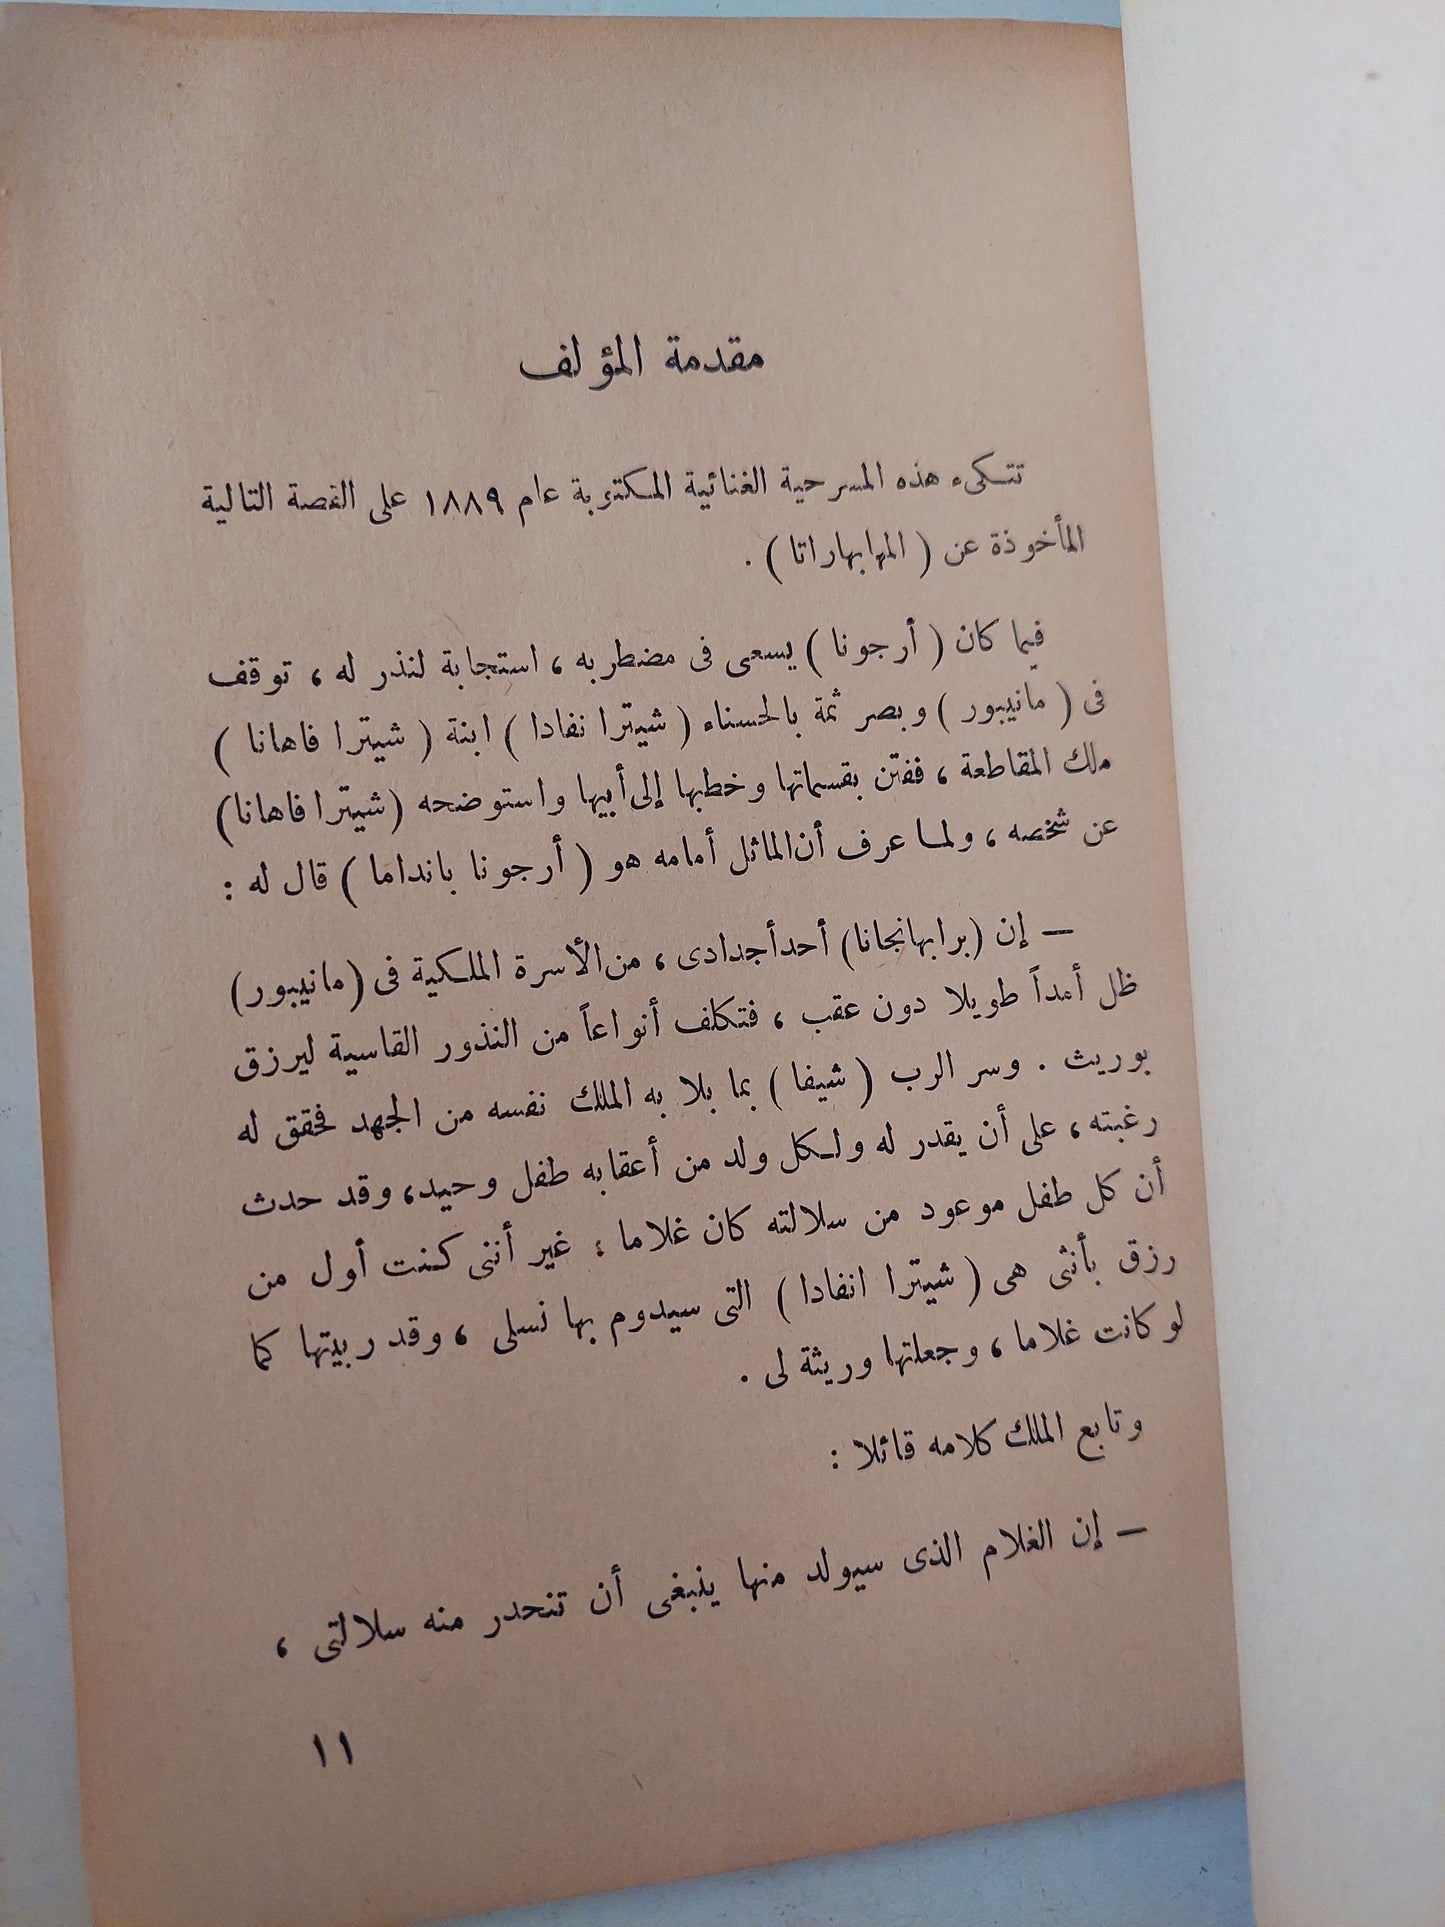 مقدمة المؤلف
تتكىء هذه المسرحية الغنائية المكتوبة عام ١٨٨٩ على القصة التالية
المأخوذة عن ( المهابهاراتا ) .
فيما كان ( أرجونا ) يسعى فى مضطربه ، استجابة لنذر له ، توقف
فى ( مانيبور ) وبصر ثمة بالحسناء ( شيترا نفادا ) ابنة ( شيترا فاهانا )
ملك المقاطعة ، ففتن بقسماتها وخطبها إلى أبيها واستوضحه ( شيترا فاهانا )
عن شخصه ، ولما عرف أن الماثل أمامه هو ( أرجونا بانداما ) قال له :
— إن ( برابهانجانا ) أحد أجدادى ، من الأسرة الملكية فى ( مانيبور )
ظل أمداً طويلا دون عقب ، فتكلف أنواعاً من النذور القاسية ليرزق
بوريث . وسر الرب ( شيفا ) بما بلا به الملك نفسه من الجهد فحقق له
رغبته ، على أن يقدر له ولكل ولد من أعقابه طفل وحيد ، وقد حدث
أن كل طفل موعود من سلالته كان غلاما ؛ غير أننى كنت أول من
رزق بأنثى هى ( شيترا انفادا ) التى سيدوم بها نسلى ، وقد ربيتها كما
لو كانت غلاما ، وجعلتها وريثة لى .
وتابع الملك كلامه قائلا :
— إن الغلام الذى سيولد منها ينبغى أن تنحدر منه سلالتى ،
١١